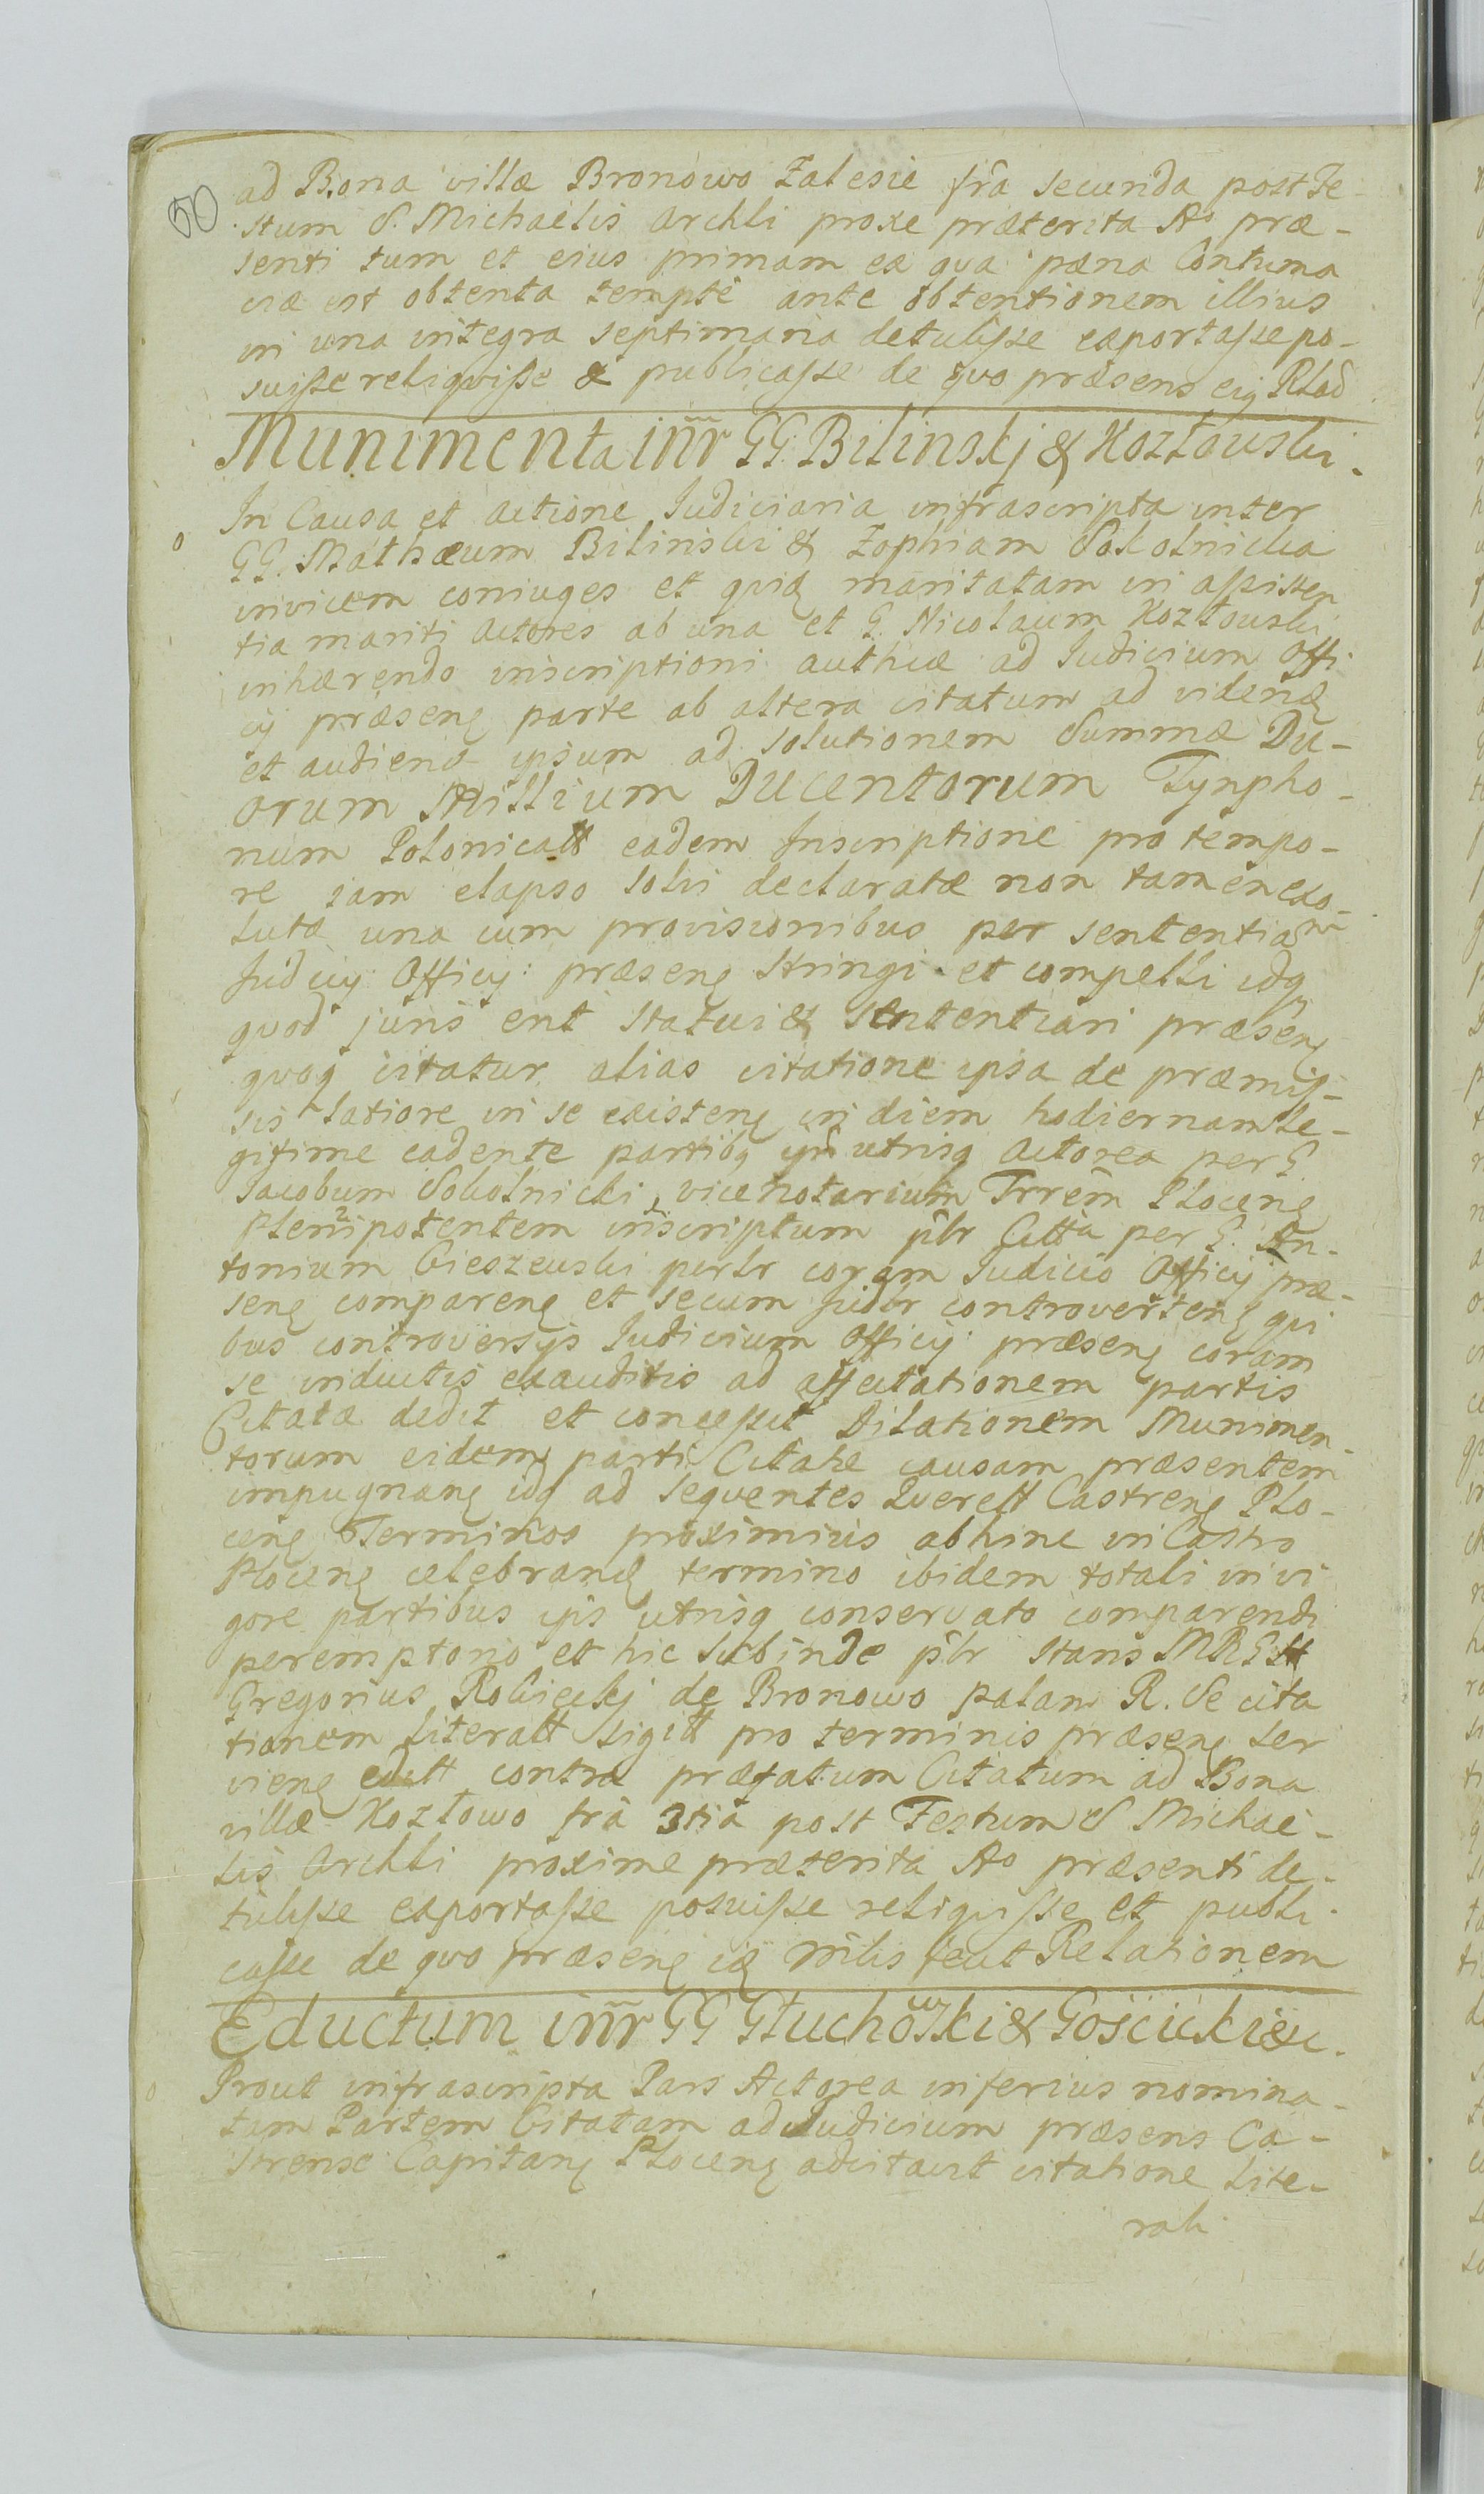 50
ad Bona villæ Bronowo Zalesie fra secunda post Fe-
stum S. Michaelis Archli proxe præterita Ao præ-
senti tum et eius primam ex qva pæna Contuma
ciæ est obtenta tempte ante obtentionem illius
in una integra septimana detulisse exportasse po-
suisse reliqvisse & publicasse de qvo præsens eig Rlaõ
Munimenta inr GG. Bilinskj & Kozłowski.
In Causa et actione Iudiciaria infrascripta inter
GG. Mathæum Bilinski & Zophiam Sokolnicka
invicem coniuges et qvid maritatam in assisten
tia mariti Actores ab una et G. Nicolaum Kozłowski
inhærendo inscriptioni authcæ ad Iudicium Offi
cij præseng parte ab altera citatum ad videnđ
et audienđ ipsum ad solutionem Summæ Du-
orum Millium Ducentorum Tynpho-
num Polonicatt eadem Inscriptione pro tempo-
re iam elapso solvi declaratæ non tamen exo-
lutæ una cum provisionibus per sententiam
Judicij Officij præseng stringi et compelli idq
qvod juris erit statui & sententiari præseng
qvoq citatur alias citatione ipsa de præmis-
sis latiore in se existeng in diem hodiernam le-
gitime cadente partibq ipis utrisq Actorea per G.
Jacobum Sokolnicki, vicenotarium Trrem Ploceng
Plenipotentem inscriptum plr Citta per G. An-
tonium Cieszewski perlr coram Iudicio Officij præ-
seng compareng et secum Judlr controverteng qvi
bus controversijs Iudicium Officij præseng coram
se inductis exauditis ad affectationem partis
Citatæ dedit et concessit Dilationem Munimen-
torum eidem parti Citatæ causam præsentem
impugnang idq ad seqventes Qverell Castreng Plo-
ceng Terminos proximius abhinc in Castro
Ploceng celebrand termino ibidem totali in vi
gore partibus ipis utrisq conservato comparendi
peremptorio et hic subinde plr stans MRGtt
Gregorius Robieckj de Bronowo palam R. Se cita
tionem literatt sigitt pro terminis præseng ser
vieng editt contra præfatum Citatum ad Bona
villæ Kozłowo fra 3tia post Festum S Michae-
lis Archli proxime præterita Ao præsenti de-
tulisse exportasse posuisse reliqvisse et publi-
casse de qvo præseng ið mlis fecit Relationem
Eductum inr GG Głuchowski & Gościcki &c.
Prout infrascripta Pars Actorea inferius nomina-
tam Partem Citatam ad Iudicium præsens Ca-
strense Capitang Ploceng adcitavit citatione lite-
rali